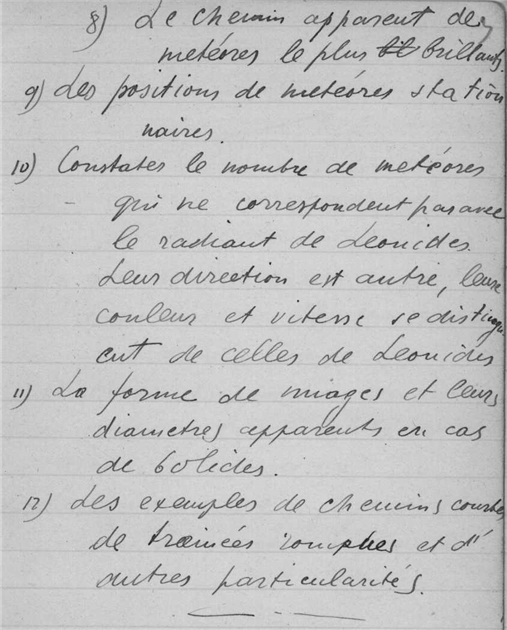 8) Le chemin apparent des
metéores le plus brillants.
9) Les positions de metéores station
naires.
10) Constater le nombre de metéores
– qui ne correspondent pas avec
le radiant de Leonides.
Leur direction est autre, leurs
couleur et vitesse se distingu
ent de celles de Leonides
11) La forme de nuages et leurs
diametres apparents en cas
de bolides.
12) Les exemples de chemins courbes
de trainées et d'
autres particularités.